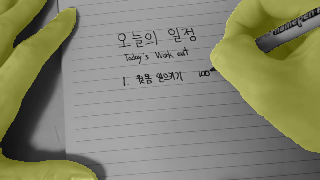 오늘의 일정
Today's Work out
1. 윗몸 일으키기 100